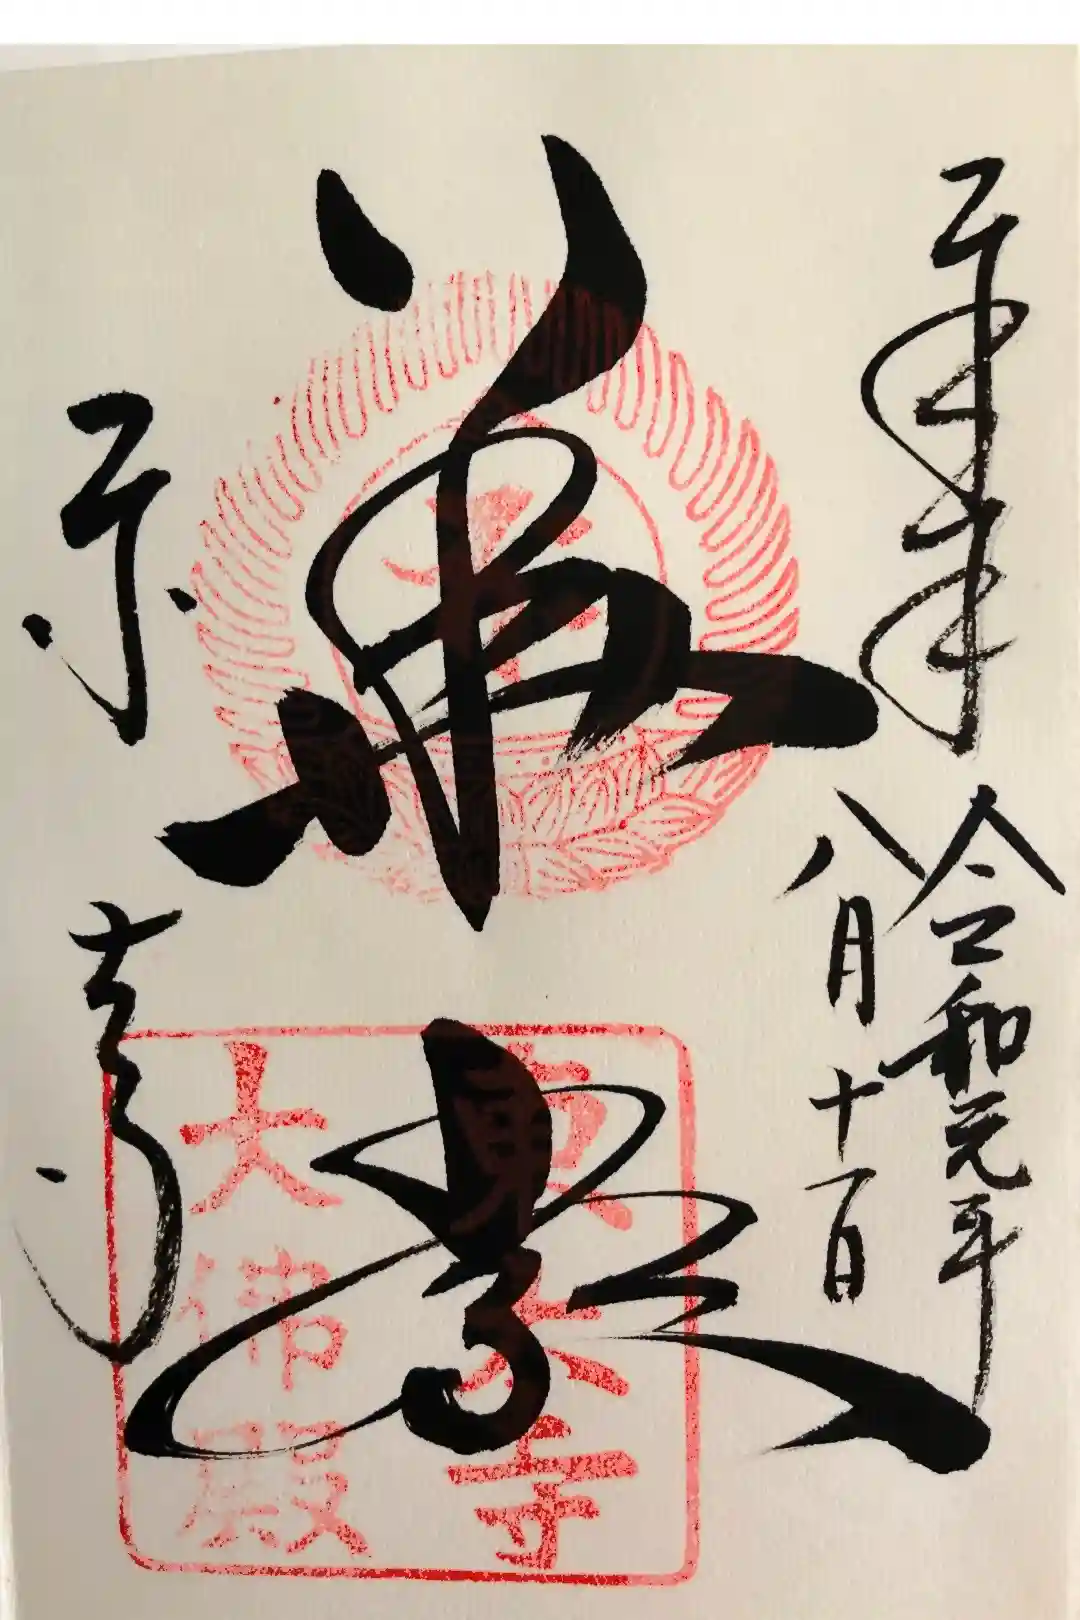 奉拝
令和元年
八月十一日
華嚴
東大寺
東大寺
大佛殿